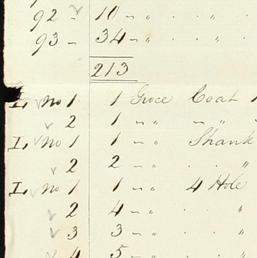 92 - 10 - " . " .
93 - 34 - " . " .
213
L, No 1 1 Groce Coat
2 1 - " - " "
L, No 1 1 - " Shank
2 2 - " . . "
L, No 1 1 - " 4 Hole
2 4 - " . "
3 3 - " . "
4 5 - " . "